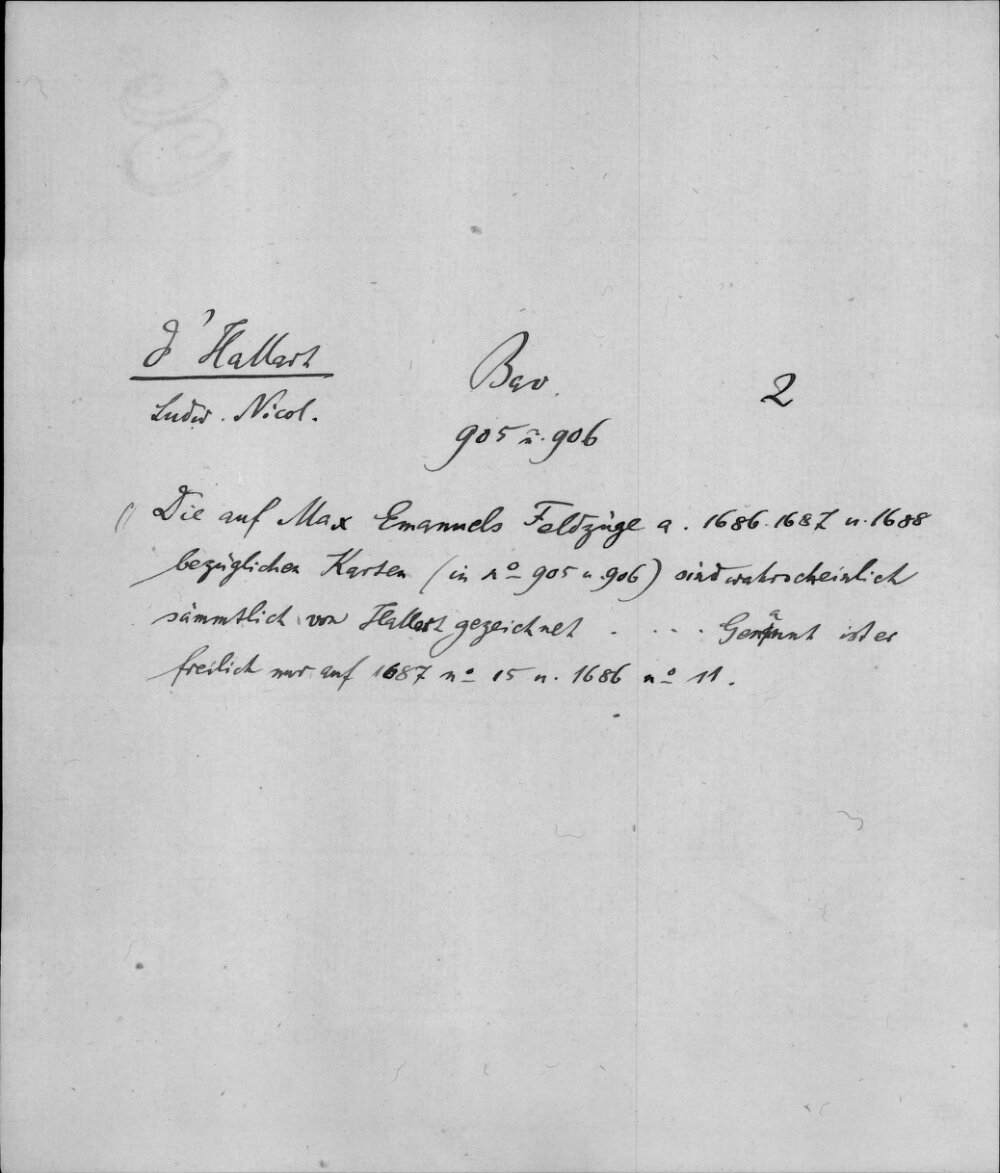 d'Hallart
Ludw. Nicol.
Bav.
905 u. 906
2
Die auf Max Emanuels Feldzüge a. 1686. 1687 u. 1688
bezüglichen Karten (in no 905 u. 906) sind wahrscheinlich
sämmtlich von Hallart gezeichnet . . . . Genannt ist er
freilich nur auf 1687 no 15 u. 1686 no 11.